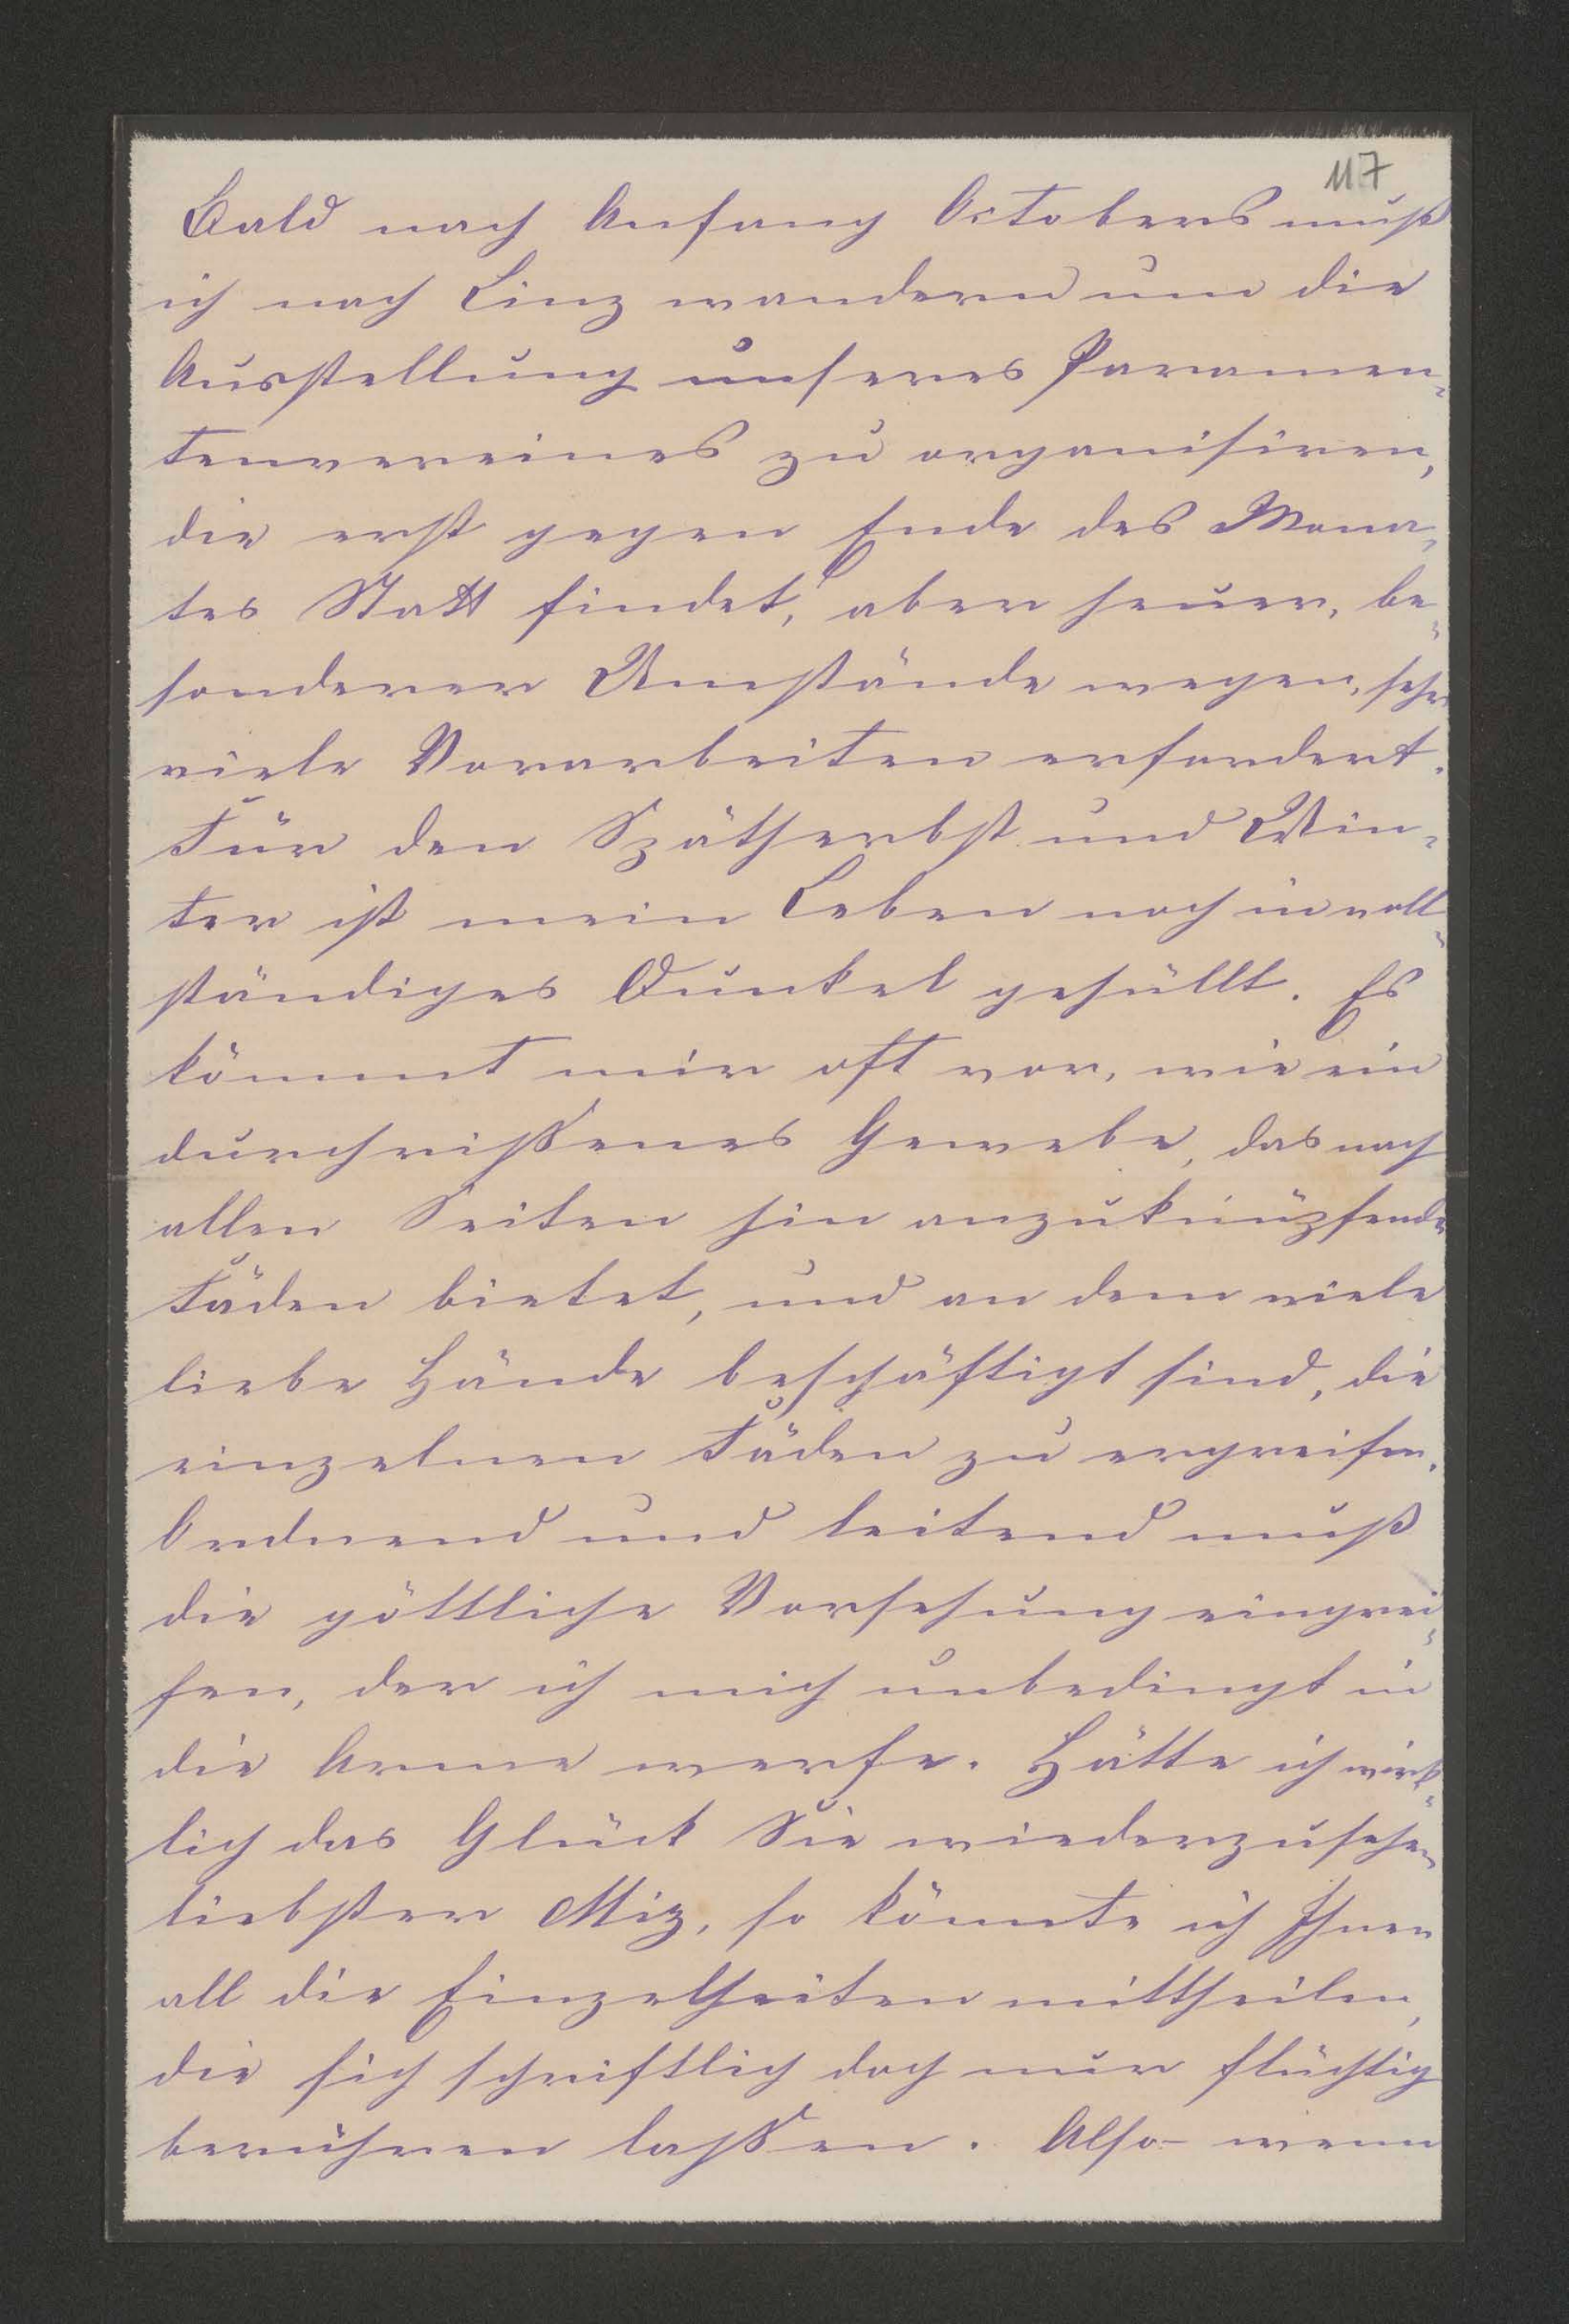 117
Bald nach Anfang Octobers muß
ich nach Linz wandern um die
Ausstellung unseres Paramen-
tenvereines zu organisiren,
die erst gegen Ende des Mona-
tes Statt findet, aber heuer, be-
sonderer Umstände wegen, sehr
viele Vorarbeiten erfordert.
Für den Spätherbst und Win-
ter ist mein Leben noch in voll-
ständiges Dunkel gehüllt. Es
kömmt mir oft vor, wie ein
durchrißenes Gewebe, das nach
allen Seiten hin anzuknüpfende
Fäden bietet, und an dem viele
liebe Hände beschäftigt sind, die
einzelnen Fäden zu ergreifen.
Ordnend und leitend muß
die göttliche Vorsehung eingrei-
fen, der ich mich unbedingt in
die Arme werfe. Hätte ich wirk-
lich das Glück Sie wiederzusehen
liebster Miz, so könnte ich Ihnen
all die Einzelheiten mittheilen,
die sich schriftlich doch nur flüchtig
berühren laßen. Also – wenn